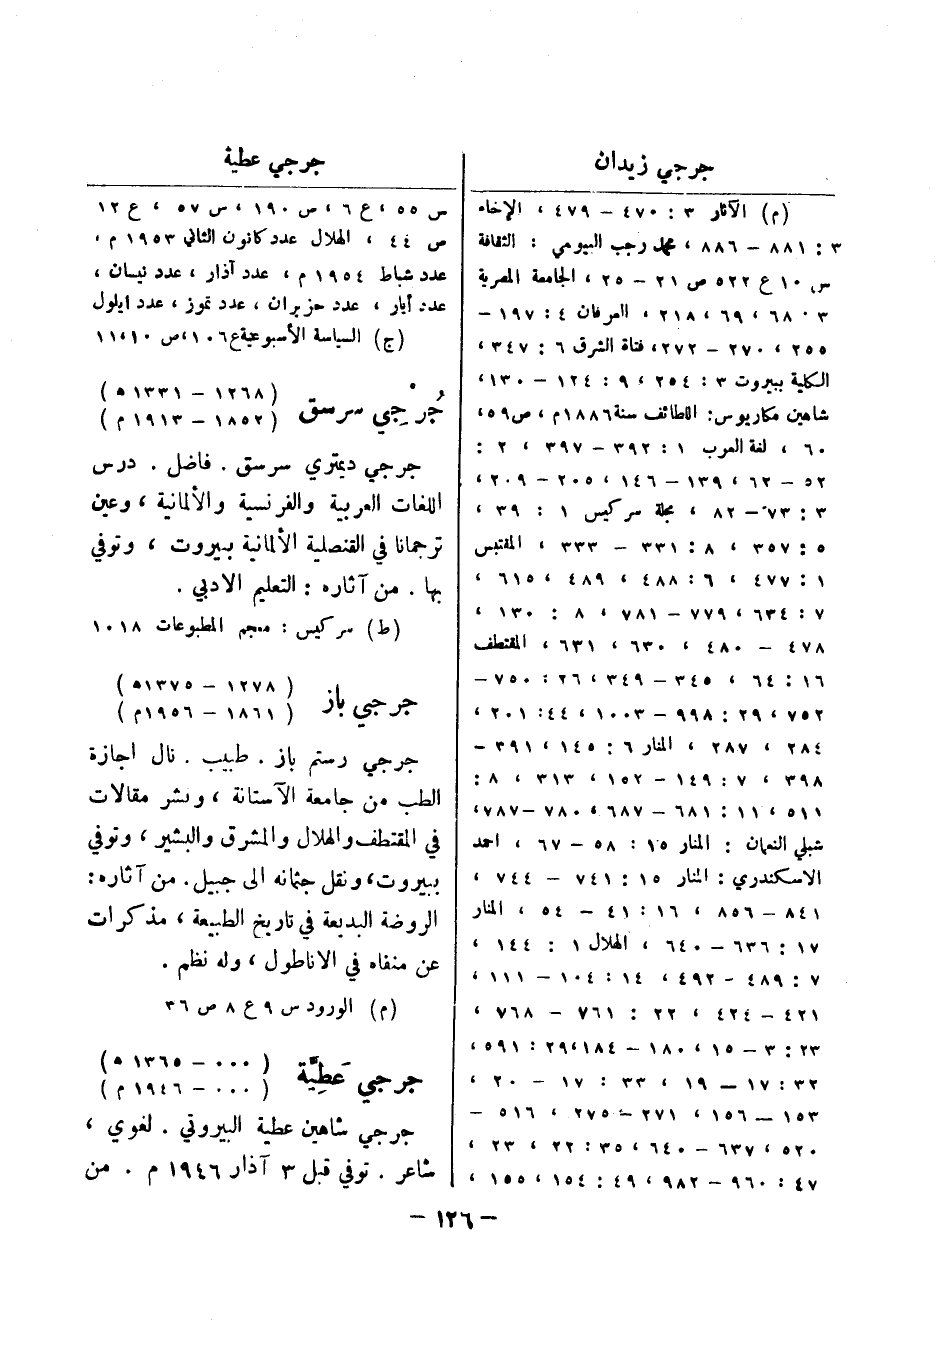 جرجي زيدان
(م) الآثار ٣ : ٤٧٠ – ٤٧٩ ، الإخاء
٣ : ٨٨١ – ٨٨٦ ، محمد رجب البيومي : الثقافة
س ١٠ ع ٥٢٢ ص ٢١ – ٢٥ ، الجامعة المصرية
٣ : ٦٨ ، ٦٩ ، ٢١٨ ، العرفان ٤ : ١٩٧ –
٢٥٥ ، ٢٧٠ – ٢٧٢ ، فتاة الشرق ٦ : ٣٤٧ ،
الكلية ببيروت ٣ : ٢٥٤ ، ٩ : ١٢٤ – ١٣٠ ،
شاهين مكاريوس : اللطائف سنة ١٨٨٦م ، ص ٥٩ ،
٦٠ ، لغة العرب ١ : ٣٩٢ – ٣٩٧ ، ٢ :
٥٢ – ٦٢ ، ١٣٩ – ١٤٦ ، ٢٠٥ – ٢٠٩ ،
٣ : ٧٣ – ٨٢ ، مجلة سركيس ١ : ٣٩ ،
٥ : ٣٥٧ ، ٨ : ٣٣١ – ٣٣٣ ، المقتبس
١ : ٤٧٧ ، ٦ : ٤٨٨ ، ٤٨٩ ، ٦١٥ ،
٧ : ٦٣٤ ، ٧٧٩ – ٧٨١ ، ٨ : ١٣٠ ،
٤٧٨ – ٤٨٠ ، ٦٣٠ ، ٦٣١ ، المقتطف
١٦ : ٦٤ ، ٣٤٥ – ٣٤٩ ، ٢٦ : ٧٥٠ –
٧٥٢ ، ٢٩ : ٩٩٨ – ١٠٠٣ ، ٤٤ : ٢٠١ ،
٢٨٤ ، ٢٨٧ ، المنار ٦ : ١٤٥ ، ٣٩١ –
٣٩٨ ، ٧ : ١٤٩ – ١٥٢ ، ٣١٣ ، ٨ :
٥١١ ، ١١ : ٦٨١ – ٦٨٧ ، ٧٨٠ – ٧٨٧ ،
شبلي النعمان : المنار ١٥ : ٥٨ – ٦٧ ، احمد
الاسكندري : المنار ١٥ : ٧٤١ – ٧٤٤ ،
٨٤١ – ٨٥٦ ، ١٦ : ٤١ – ٥٤ ، المنار
١٧ : ٦٣٦ – ٦٤٠ ، الهلال ١ : ١٤٤ ،
٧ : ٤٨٩ – ٤٩٢ ، ١٤ : ١٠٤ – ١١١ ،
٤٢١ – ٤٢٤ ، ٢٢ : ٧٦١ – ٧٦٨ ،
٢٣ : ٣ – ١٥ ، ١٨٠ – ١٨٤ ، ٢٩ : ٥٩١ ،
٣٢ : ١٧ – ١٩ ، ٣٣ : ١٧ – ٢٠ ،
١٥٣ – ١٥٦ ، ٢٧١ – ٢٧٥ ، ٥١٦ –
٥٢٠ ، ٦٣٧ – ٦٤٠ ، ٣٥ : ٢٢ ، ٢٣ ،
٤٧ : ٩٦٠ – ٩٨٢ ، ٤٩ : ١٥٤ ، ١٥٥ ،
جرجي عطية
س ٥٥ ، ع ٦ ، ص ١٩٠ ، س ٥٧ ، ع ١٢
ص ٤٤ ، الهلال عدد كانون الثاني ١٩٥٣ م ،
عدد شباط ١٩٥٤ م ، عدد آذار ، عدد نيسان ،
عدد أيار ، عدد حزيران ، عدد تموز ، عدد ايلول
(ج) السياسة الأسبوعية ع ١٠٦ ، ص ١٠ ، ١١
جُرْجِي سرسق
(١٢٦٨ – ١٣٣١ ه)
(١٨٥٢ – ١٩١٣ م)
جرجي ديمتري سرسق . فاضل . درس
اللغات العربية والفرنسية والألمانية ، وعين
ترجمانا في القنصلية الألمانية ببيروت ، وتوفي
بها . من آثاره : التعليم الادبي .
(ط) سركيس : معجم المطبوعات ١٠١٨
جرجي باز
(١٢٧٨ – ١٣٧٥ه)
(١٨٦١ – ١٩٥٦م)
جرجي رستم باز . طبيب . نال اجازة
الطب من جامعة الآستانة ، ونشر مقالات
في المقتطف والهلال والمشرق والبشير ، وتوفي
ببيروت ، ونقل جثمانه الى جبيل . من آثاره :
الروضة البديعة في تاريخ الطبيعة ، مذكرات
عن منفاه في الاناطول ، وله نظم .
(م) الورود س ٩ ع ٨ ص ٣٦
جرجي عَطِيَّة
(٠٠٠ – ١٣٦٥ ه)
(٠٠٠ – ١٩٤٦ م)
جرجي شاهين عطية البيروتي . لغوي ،
شاعر . توفي قبل ٣ آذار ١٩٤٦ م . من
– ١٢٦ –